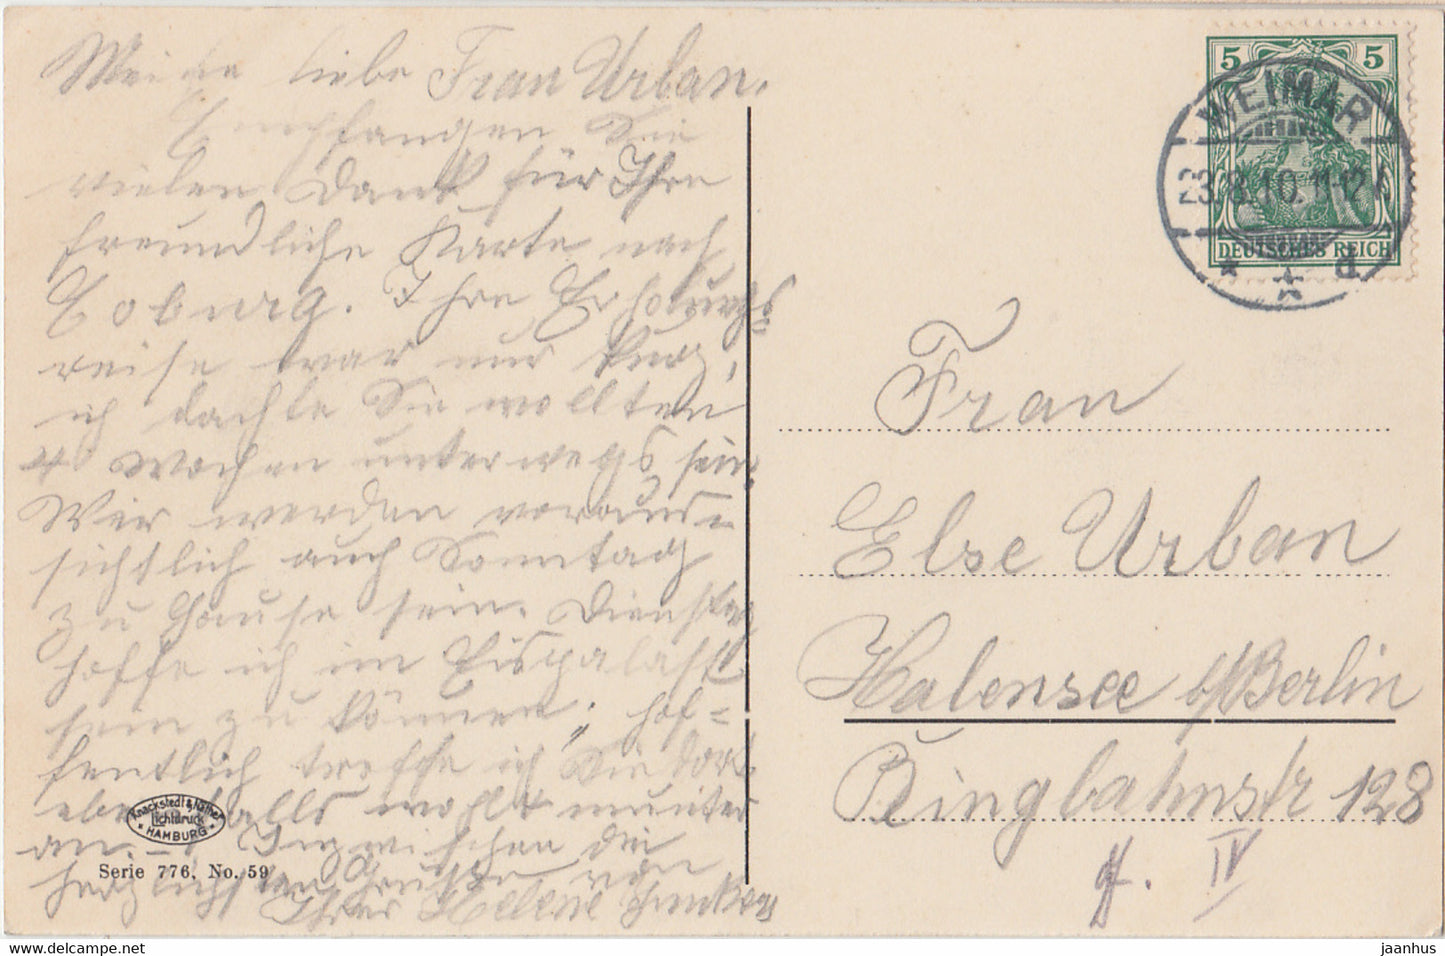 Meine liebe Frau Urban.
Empfangen Sie
vielen Dank für Ihre
freundliche Karte nach
Coburg. Ihre Erholungs-
reise war nur kurz,
ich dachte Sie wollten
4 Wochen unterwegs sein.
Wir werden voraus-
sichtlich auch Sonntag
zu Hause sein. Dienstag
hoffe ich im Eispalast
sein zu können; hof-
fentlich treffe ich Sie dort
ebenfalls wohl & munter
an. - Inzwischen die
herzlichsten Grüße von
Ihrer Helene
Knackstedt & Näther
Lichtdruck
* HAMBURG *
Serie 776, No. 59
5 5
DEUTSCHES REICH
WEIMAR
23.8.10. 11-12
* * d
Frau
Else Urban
Halensee b/Berlin
Ringbahnstr 128
IV
jaanhus